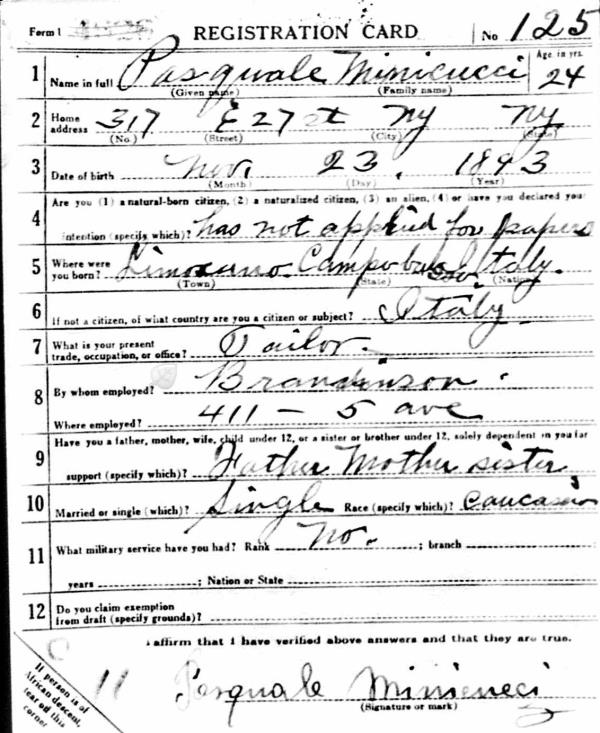 Form 1 REGISTRATION CARD No 125
1 Name in full Pasquale Minicucci Age in yrs. 24
(Given name) (Family name)
2 Home address 317 E 27 st NY NY
(No.) (Street) (City) (State)
3 Date of birth Nov. 23, 1893
(Month) (Day) (Year)
4 Are you (1) a natural-born citizen, (2) a naturalized citizen, (3) an alien, (4) or have you declared your
intention (specify which)? has not applied for papers
5 Where were you born? Limosano Campobasso Italy.
(Town) (State) (Nation)
6 If not a citizen, of what country are you a citizen or subject? Italy
7 What is your present trade, occupation, or office? Tailor.
8 By whom employed?
Where employed? 411 – 5 ave
9 Have you a father, mother, wife, child under 12, or a sister or brother under 12, solely dependent on you for
support (specify which)? Father Mother sister
10 Married or single (which)? Single Race (specify which)? Caucasian
11 What military service have you had? Rank No. ; branch
years ; Nation or State
12 Do you claim exemption from draft (specify grounds)?
I affirm that I have verified above answers and that they are true.
If person is of
African descent,
tear off this
corner
11 Pasquale Minicucci
(Signature or mark)